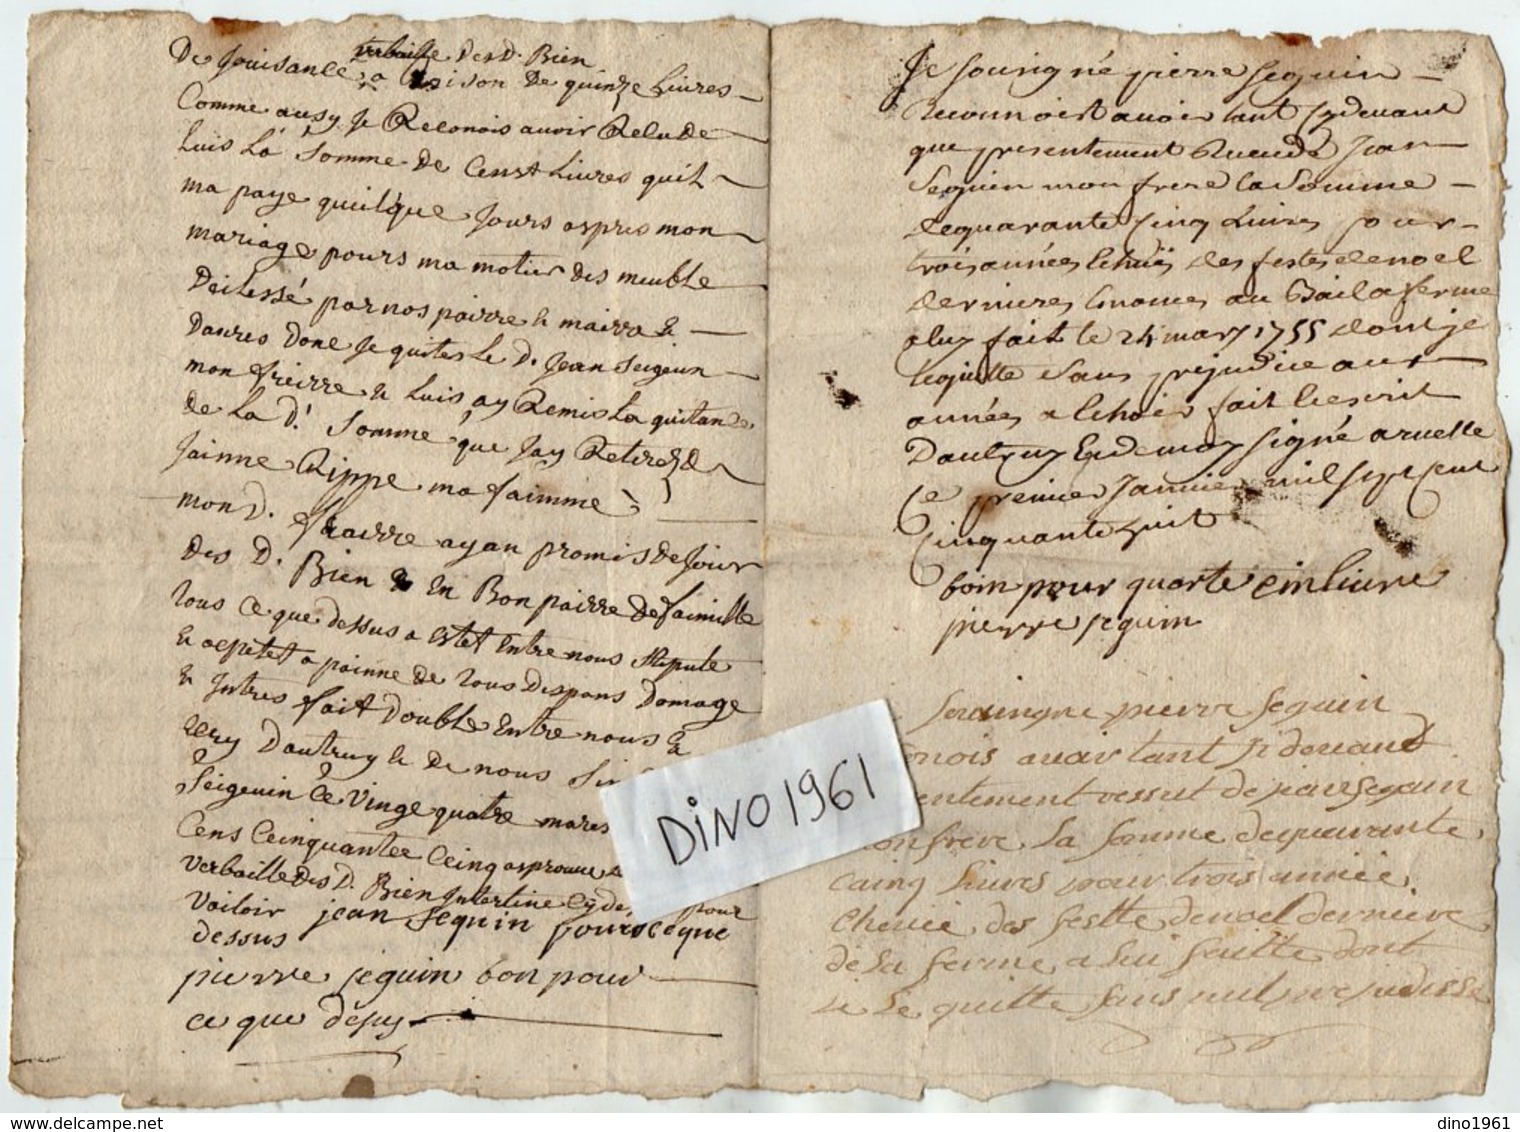 verbaille des d. Bien
De Jouisance, a Raison De quinze Livres
Comme ausy Je Reconois avoir Recu de
Luis La somme de Censt Livres quil
ma paye queilque Jours aspres mon
mariage pours ma motier des meuble
Deilessé par nos pairre & mairre &
Danres Donc Je quites Le D. Jean Seigeuin
mon freirre & Luis ay Remis La quitance
de La d. Somme que Jay Retirez de
Jainne Rippe ma faimme
mon D. frairre ayan promis de Jouir
des D. Bien & En Bon pairre de faimille
Tous Ce que dessus a Estet Entre nous stipule
& acpetet a painne de Tous Despans Domage
& Intres fait Double Entre nous &
Seigeuin Ce Vinge quatre mares
Cens Ceinquantee Ceinq asprouve
verbaille des D. Bien Intertine Cyde pour
Valoir jean seguin pour ce que
dessus
pierre seguin bon pour
ce que desus
Je sousigné pierre Seguin
Reconnoist avoir tant Cydevant
que presentement Receu de Jean
Seguin mon frere la Somme
de quarante Cinq Livres pour
trois années Echuës des festes de noel
dernieres Enoncés au Bail a ferme
a luy fait le 24 mars 1755 dont je
le quitte Sans prejudice aux
années a Echoir fait Escrit
Dautruy En de moy signé a ruelle
Ce premier Janvier mil sept cent
Cinquante huit
boin pour quarte cin liure
pierre seguin
Sousingne pierre Seguin
onois avair tant si devand
entement ressut de piere Seguin
mon frere La somme de quarante
Cainq Livres pour trois année
Cheuee des festte de noel derniere
de La ferme a Lui faitte dont
je Le quitte sans nul prejudisse
DINO1961
dino1961